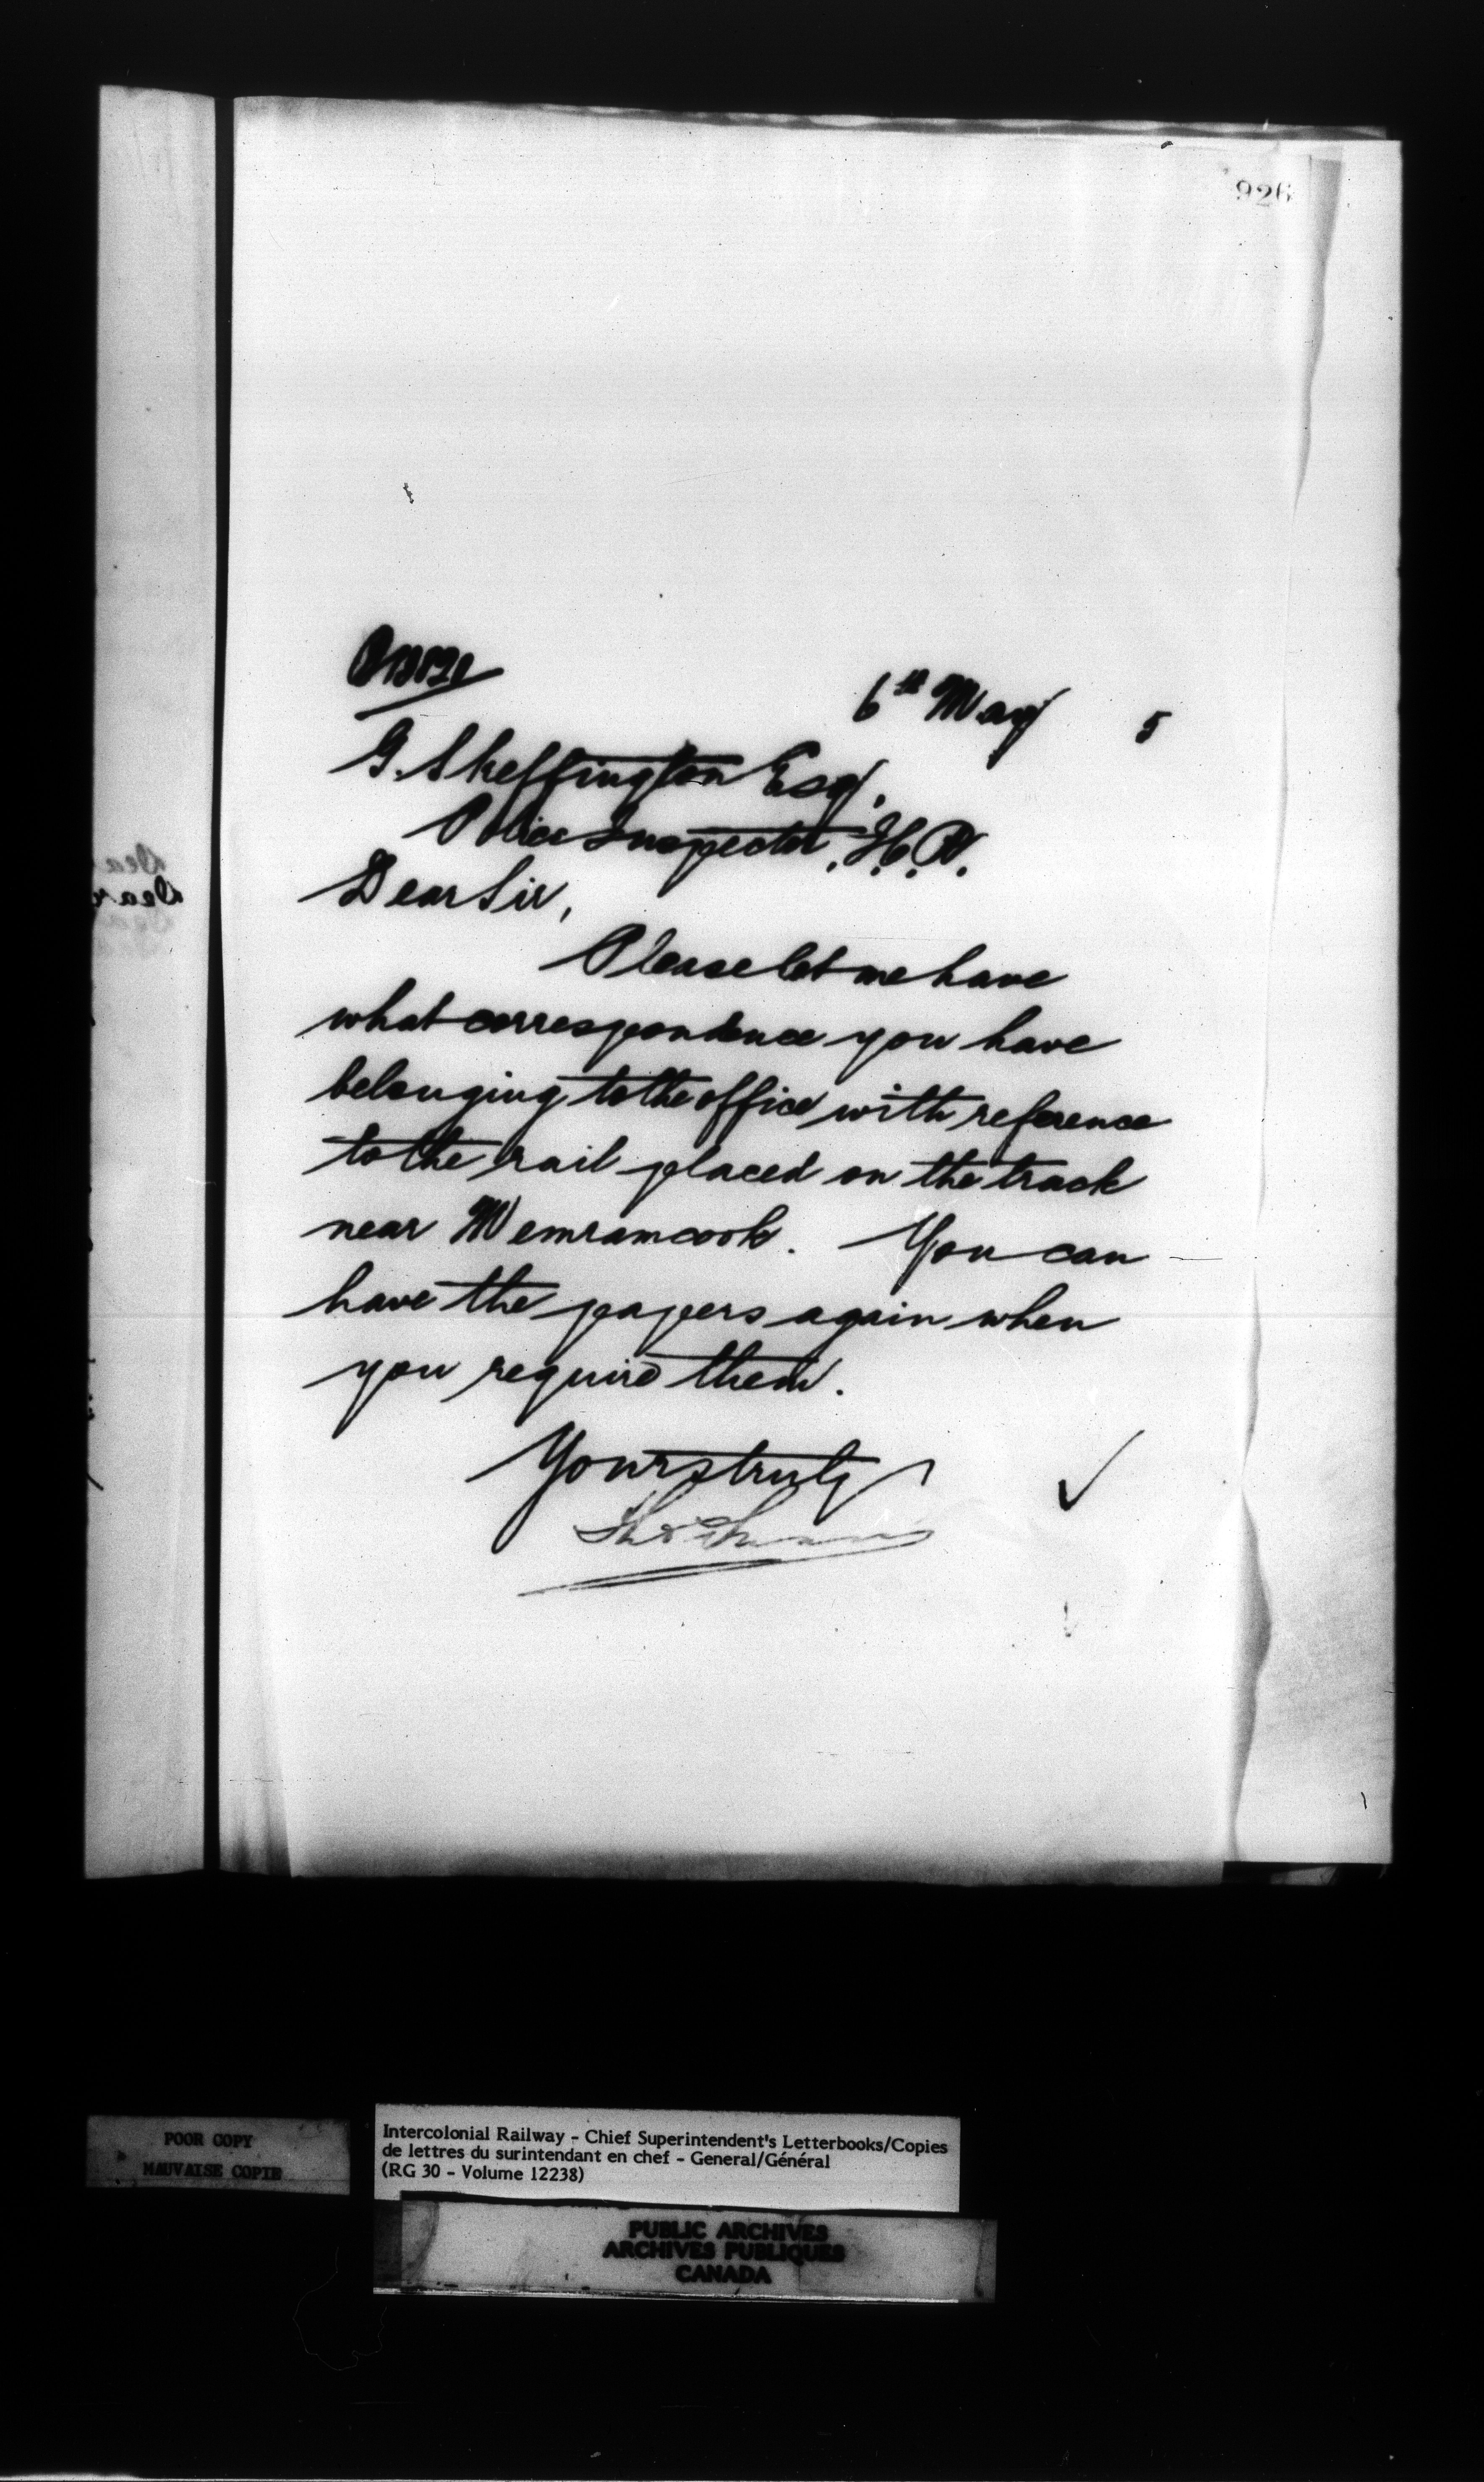 926
6th May 5
G. Skeffington Esq.
Police Inspector, I.C.R.
Dear Sir,
Please let me have
what correspondence you have
belonging to the office with reference
to the rail placed on the track
near Memramcook. You can
have the papers again when
you require them.
Yours truly
Dear
POOR COPY
MAUVAISE COPIE
Intercolonial Railway - Chief Superintendent's Letterbooks/Copies
de lettres du surintendant en chef - General/Général
(RG 30 - Volume 12238)
PUBLIC ARCHIVES
ARCHIVES PUBLIQUES
CANADA